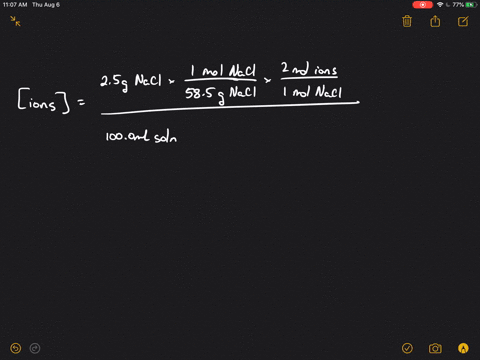 11:07 AM Thu Aug 6
77%
[ions] = 2.5g NaCl × 1 mol NaCl / 58.5g NaCl × 2 mol ions / 1 mol NaCl
100.0ml soln